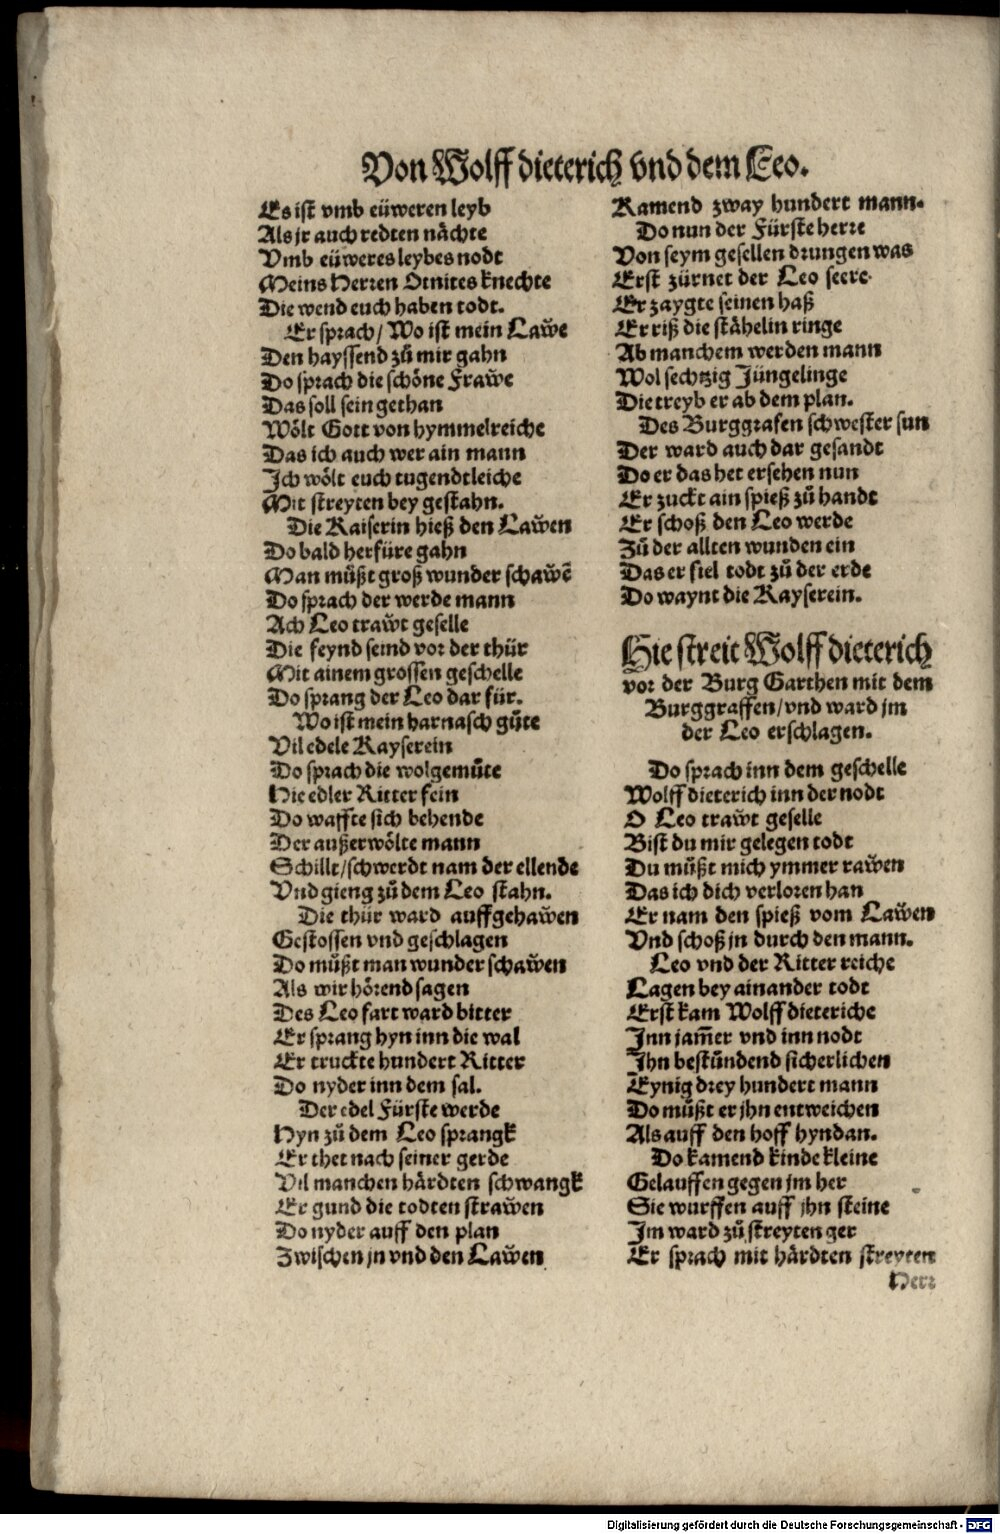 Von Wolff dieterich vnd dem Leo.
Es ist vmb eüweren leyb
Als jr auch redten nächte
Vmb eüweres leybes nodt
Meins Herren Otnites knechte
Die wend euch haben todt.
Er sprach / Wo ist mein Lawe
Den hayssend zů mir gahn
Do sprach die schöne Frawe
Das soll sein gethan
Wölt Gott von hymmelreiche
Das ich auch wer ain mann
Ich wölt euch tugendtleiche
Mit streyten bey gestahn.
Die Kaiserin hieß den Lawen
Do bald herfüre gahn
Man müßt groß wunder schawē
Do sprach der werde mann
Ach Leo trawt geselle
Die feynd seind vor der thür
Mit ainem grossen geschelle
Do sprang der Leo dar für.
Wo ist mein harnasch gůte
Vil edele Kayserein
Do sprach die wolgemůte
Hie edler Ritter fein
Do waffte sich behende
Der außerwölte mann
Schillt / schwerdt nam der ellende
Vnd gieng zů dem Leo stahn.
Die thür ward auffgehawen
Gestossen vnd geschlagen
Do müßt man wunder schawen
Als wir hörend sagen
Des Leo fart ward bitter
Er sprang hyn inn die wal
Er truckte hundert Ritter
Do nyder inn dem sal.
Der edel Fürste werde
Hyn zů dem Leo sprangk
Er thet nach seiner gerde
Vil manchen härdten schwangk
Er gund die todten strawen
Do nyder auff den plan
Zwischen jn vnd den Lawen
Kamend zway hundert mann.
Do nun der Fürste herre
Von seym gesellen drungen was
Erst zürnet der Leo seere
Er zaygte seinen haß
Er riß die stähelin ringe
Ab manchem werden mann
Wol sechtzig Jüngelinge
Die treyb er ab dem plan.
Des Burggrafen schwester sun
Der ward auch dar gesandt
Do er das het ersehen nun
Er zuckt ain spieß zů handt
Er schoß den Leo werde
Zů der allten wunden ein
Das er fiel todt zů der erde
Do waynt die Kayserein.
Hie streit Wolff dieterich
vor der Burg Garthen mit dem
Burggraffen / vnd ward jm
der Leo erschlagen.
Do sprach inn dem geschelle
Wolff dieterich inn der nodt
O Leo trawt geselle
Bist du mir gelegen todt
Du můßt mich ymmer rawen
Das ich dich verloren han
Er nam den spieß vom Lawen
Vnd schoß jn durch den mann.
Leo vnd der Ritter reiche
Lagen bey ainander todt
Erst kam Wolff dieteriche
Inn jam̃er vnd inn nodt
Ihn bestůndend sicherlichen
Eynig drey hundert mann
Do můßt er jhn entweichen
Als auff den hoff hyndan.
Do kamend kinde kleine
Gelauffen gegen jm her
Sie wurffen auff jhn steine
Im ward zů streyten ger
Er sprach mit härdten streyten
Herr
Digitalisierung gefördert durch die Deutsche Forschungsgemeinschaft - DFG